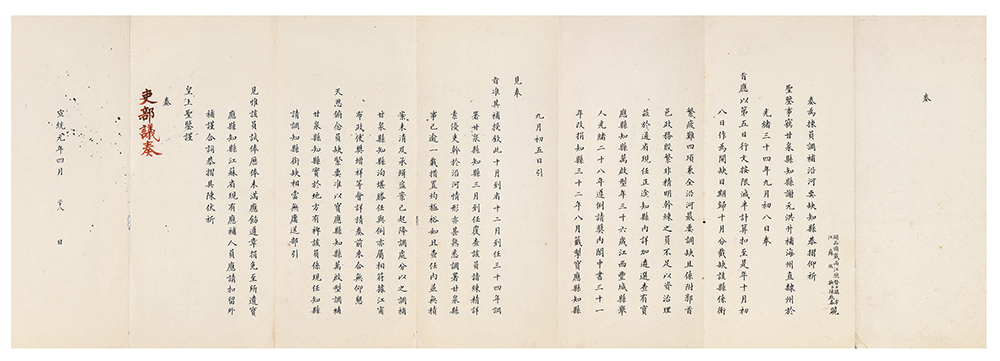 奏
奏為揀員調補沿河要缺知縣恭摺仰祈
聖鑒事竊甘泉縣知縣謝元洪升補海州直隸州於
光緒三十四年九月初八日奉
旨應以第五日行文按限減半計算扣至是年十月初
八日作為開缺日期歸十月分截缺該縣係衝
繁疲難四項兼全沿河最要調缺且係附郭首
邑政務殷繁非精明幹練之員不足以資治理
茲於通省現任正途知縣內詳加遴選查有寶
應縣知縣萬啟型年三十六歲江西豐城縣舉
人光緒二十八年遵例請獎內閣中書三十一
年改捐知縣三十二年八月籤掣寶應縣知縣
九月初五日引
見奉
旨准其補授欽此十月到省十二月到任三十四年調
署甘泉縣知縣三月到任覆查該員諳練精詳
素優吏幹於沿河情形亦甚熟悉調署甘泉縣
事已逾一載措置均極裕如且查任內並無積
案未清及承緝盜案已起降調處分以之調補
甘泉縣知縣洵堪勝任與例亦屬相符據江甯
布政使樊增祥等會詳請奏前來合無仰懇
天恩俯念員缺緊要准以寶應縣知縣萬啟型調補
甘泉縣知縣實於地方有裨該員係現任知縣
請調知縣銜缺相當無庸送部引
見惟該員試俸歷俸未滿應飭遵章捐免至所遺寶
應縣知縣江蘇省現有應補人員應請扣留外
補謹合詞恭摺具陳伏祈
皇上聖鑒謹
奏
吏部議奏
宣統元年四月
日